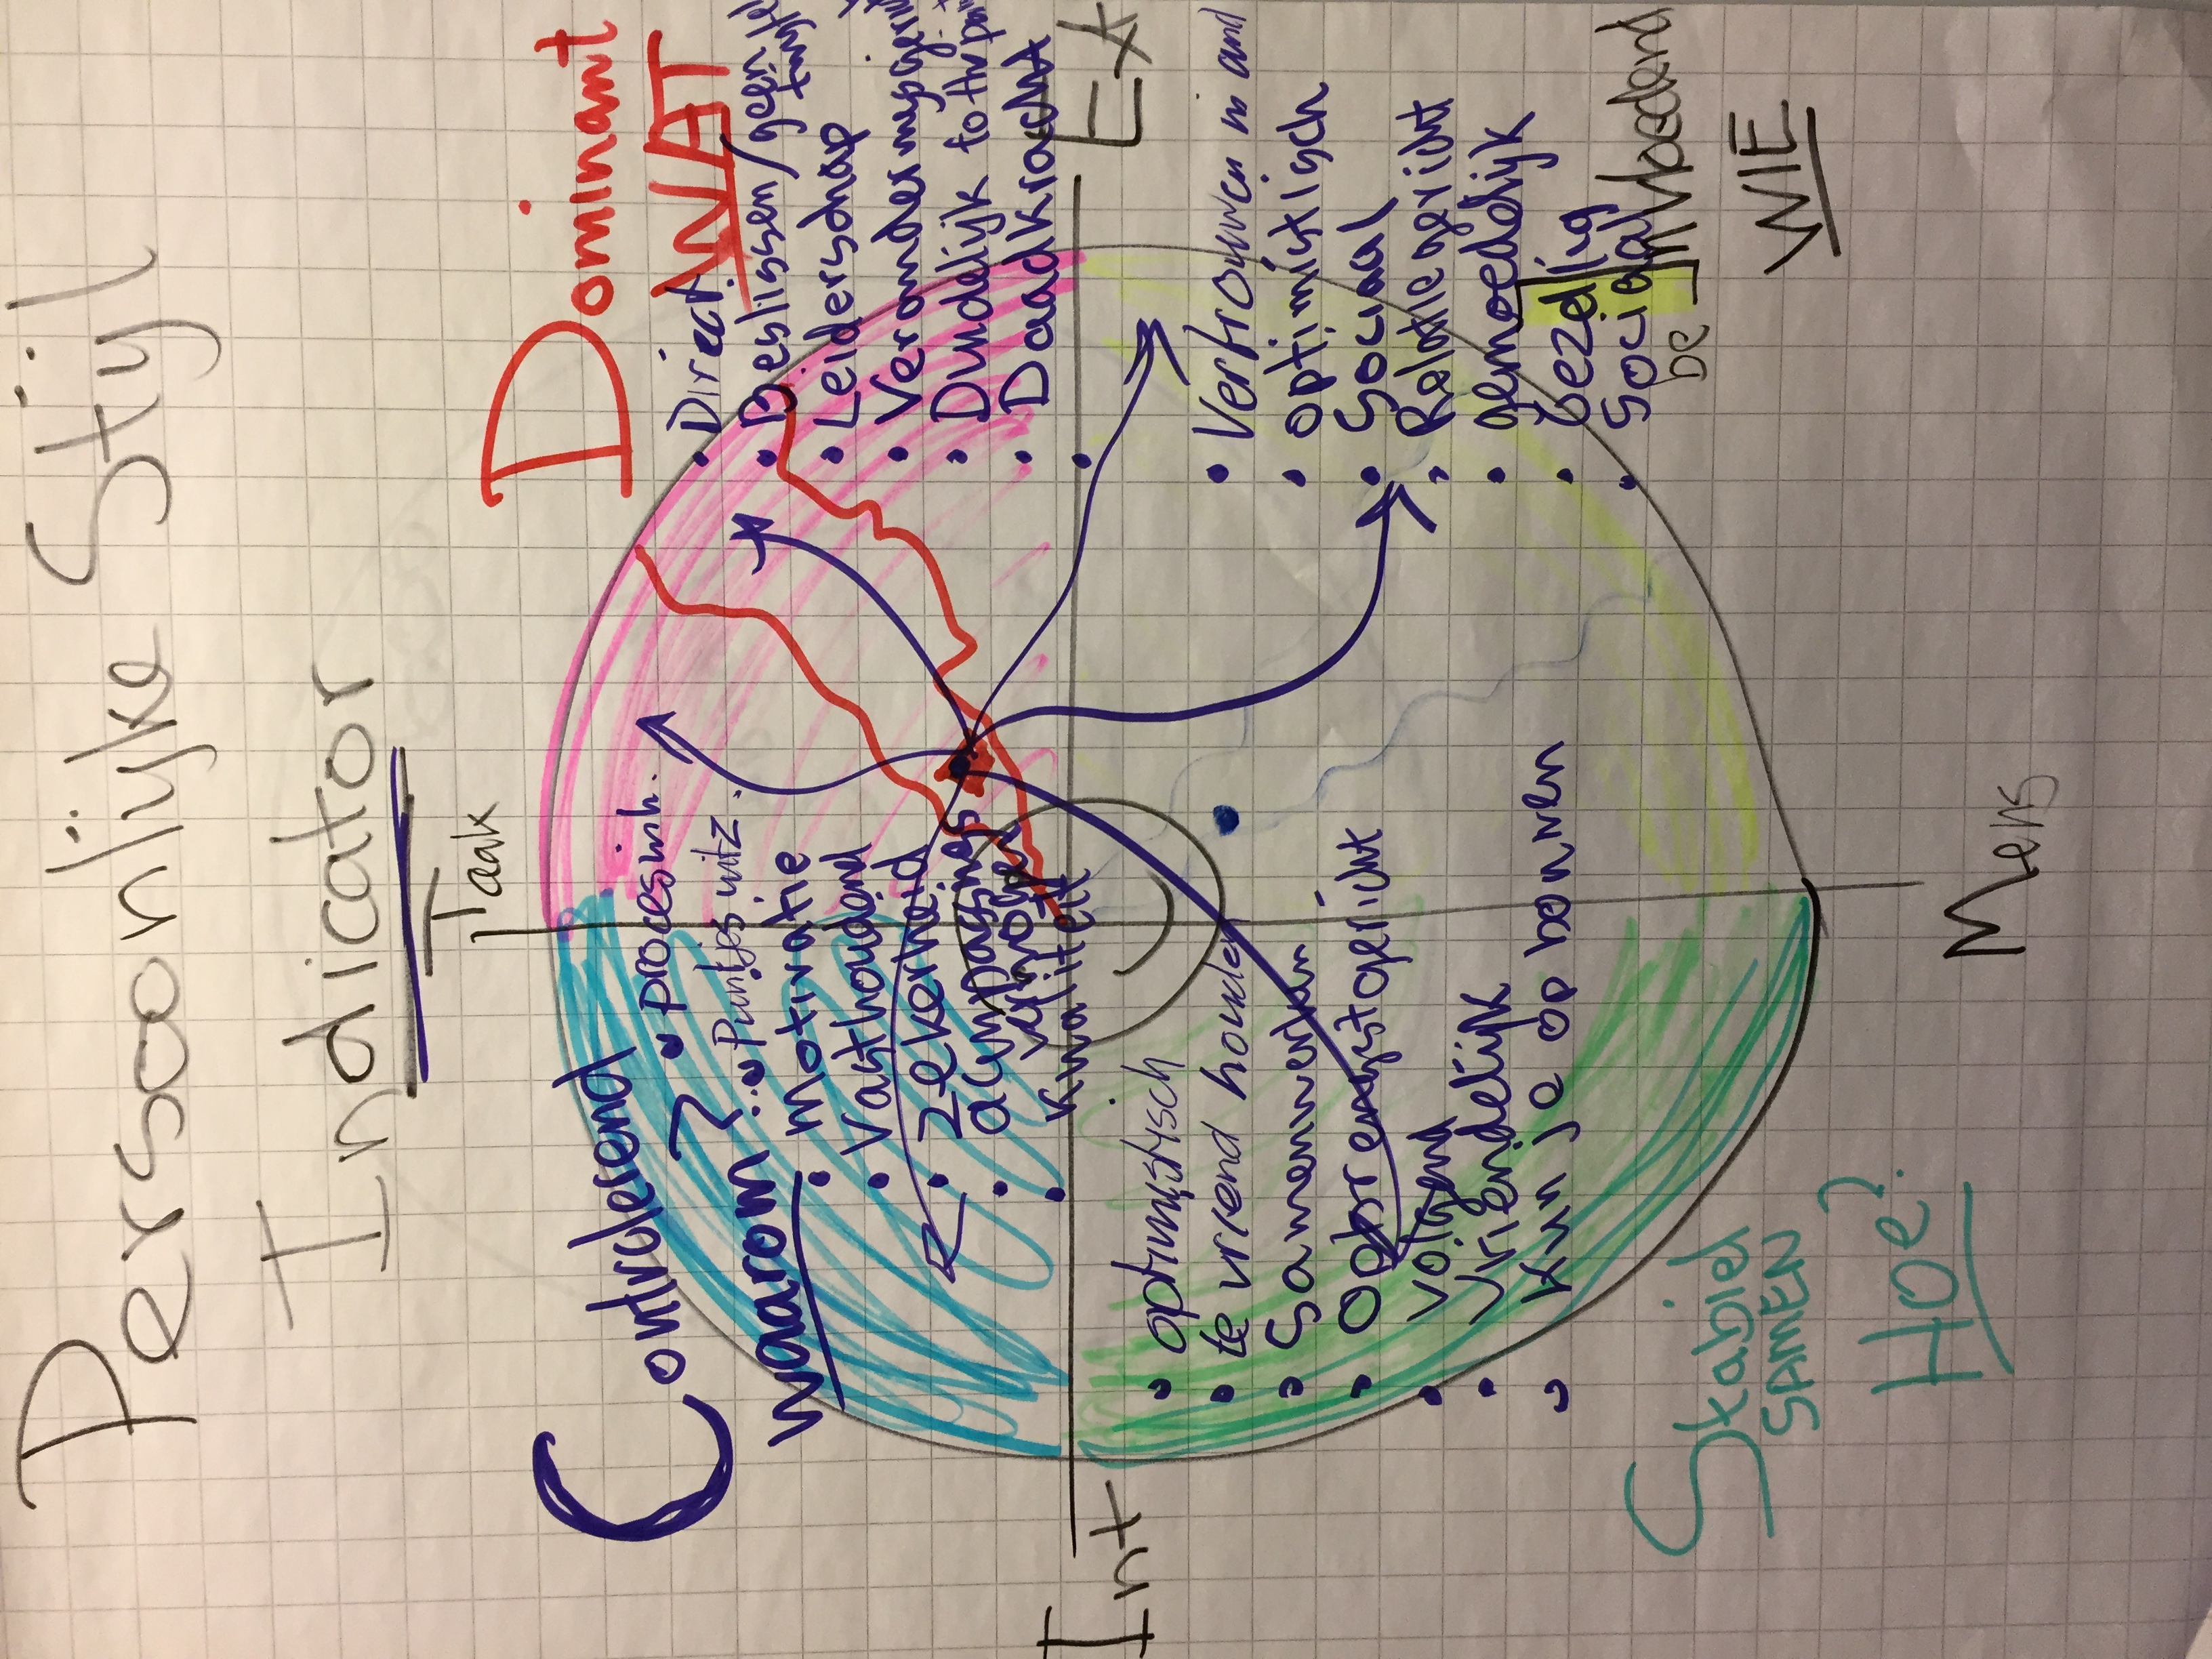 Persoonlijke Stijl
Indicator
Taak
Controlerend
waarom?
• procesinh.
• Puntjes
motivatie
• Vasthoudend
• Zekerheid
•
• kwaliteit
Dominant
WAT
• Direct
• Beslissen/geen
• Leiderschap
•
• Duidelijk to the
• Daadkracht
•
Int
Ext
• optimistisch
• te vriend houden
• Samenwerken
• Opbrengstgericht
• volgend
• Vriendelijk
• kun je op bouwen
Stabiel
SAMEN
HOE?
• Vertrouwen in and
• optimistisch
• Sociaal
• Relatiegericht
• gemoedelijk
• Gezellig
• Sociaal
be Invloedend
WIE
Mens